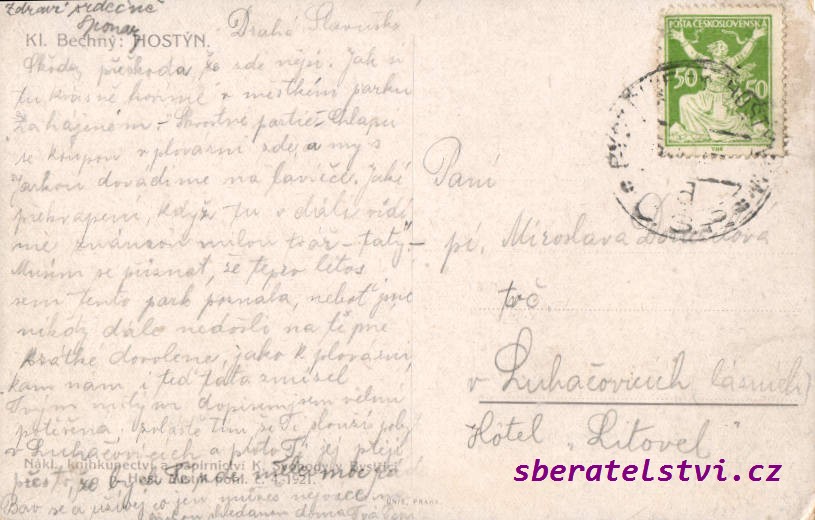 Zdraví srdečně
Kl. Bechný: HOSTÝN.
Drahá Slavuško
Škoda přeškoda že zde nejsi. Jak si
tu krásně hovíme v městkém parku
Zahájeném. Skvostné partie. Chlapci
se koupou v plovárni zde a my s
Jarkou dovádíme na lavičce. Jaké
překvapení, když tu v dáli vidí
me známou milou tvář - taty -
Musím se přiznat, že teprv letos
sem tento park poznala, neboť jsme
nikdy dále nedošli na té mé
krátké dovolené, jako k plovárni
kam nám i teď táta zmizel
Tvým milým dopisem jsem velmi
potěšena. zvláště tím že Ti slouží pobyt
v Luhačovicích a proto Ti jej přeji
přesto, že by i Tě zde
Bav se a užívej co jen můžeš nejvíce
doma
Nákl. knihkupectví a papírnictví K. Svobody v Bystřici
Host. 1921.
UNIE, PRAHA
POŠTA ČESKOSLOVENSKÁ
50 50
Paní
pí. Miroslava
tč.
v Luhačovicích (lázních)
Hôtel „Litovel"
sberatelstvi.cz